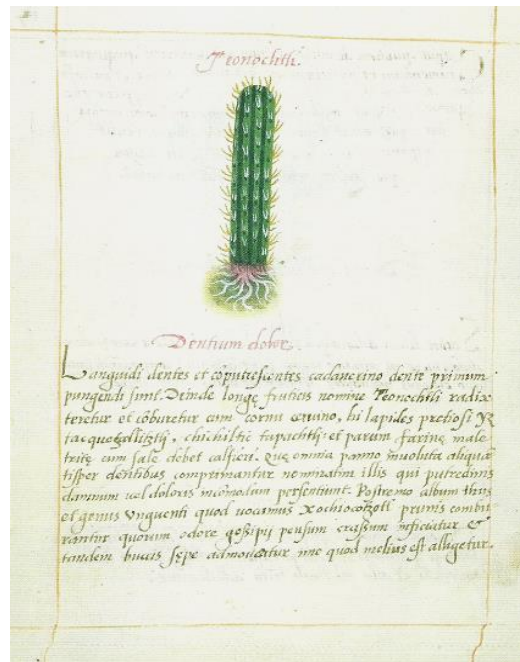 Teonochtli.
Dentium dolor.
Languidi dentes et cōputrescentes cadauerino dente primum
pungendi sunt. Deinde longę fruticis nomine Teonochtli radix
teretur et cōburetur cum cornu ceruino, hi lapides pretiosi
chichiltic tapachtli et parum farinę male
tritę cum sale debet calfieri. Quę omnia panno inuoluta aliquā
tisper dentibus comprimantur nominatim illis qui putredinis
damnum uel doloris incōmodum persentiunt. Postremo album thus
et genus unguenti quod uocamus Xochiocotzotl prunis combu
rantur quorum odore gossipij pensum crassum inficiatur &
tandem buccis sępe admoueatur īme quod melius est alligetur.